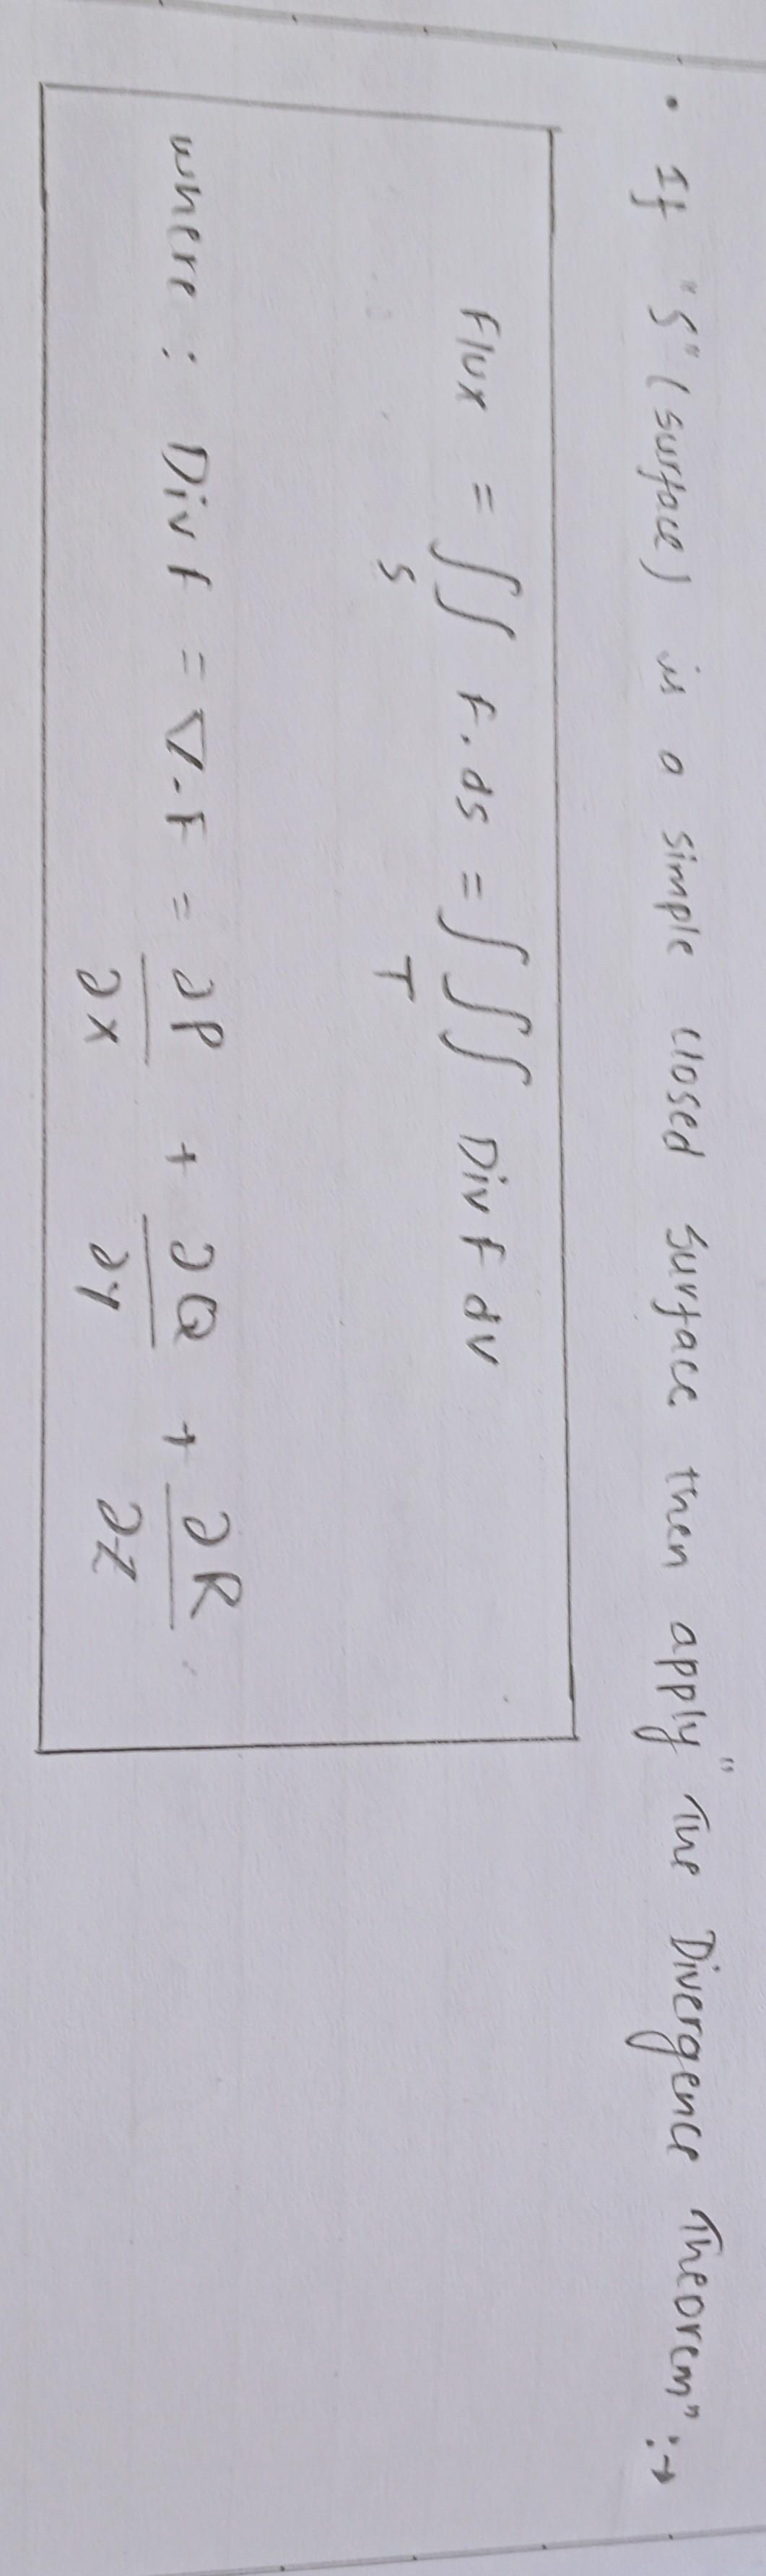 • If "S" (surface) is a simple closed surface then apply "The Divergence Theorem" :→
Flux = ∫∫ F. ds = ∫∫∫ Div F dv
S T
where : Div F = ∇.F = ∂P/∂x + ∂Q/∂y + ∂R/∂z